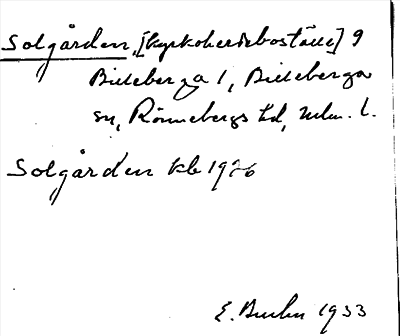 Solgården, [kyrkoherdeboställe] 9
Billeberga 1, Billeberga
sn, Rönnebergs hd, Mlm. l.
Solgården kb 1926
E. 1933